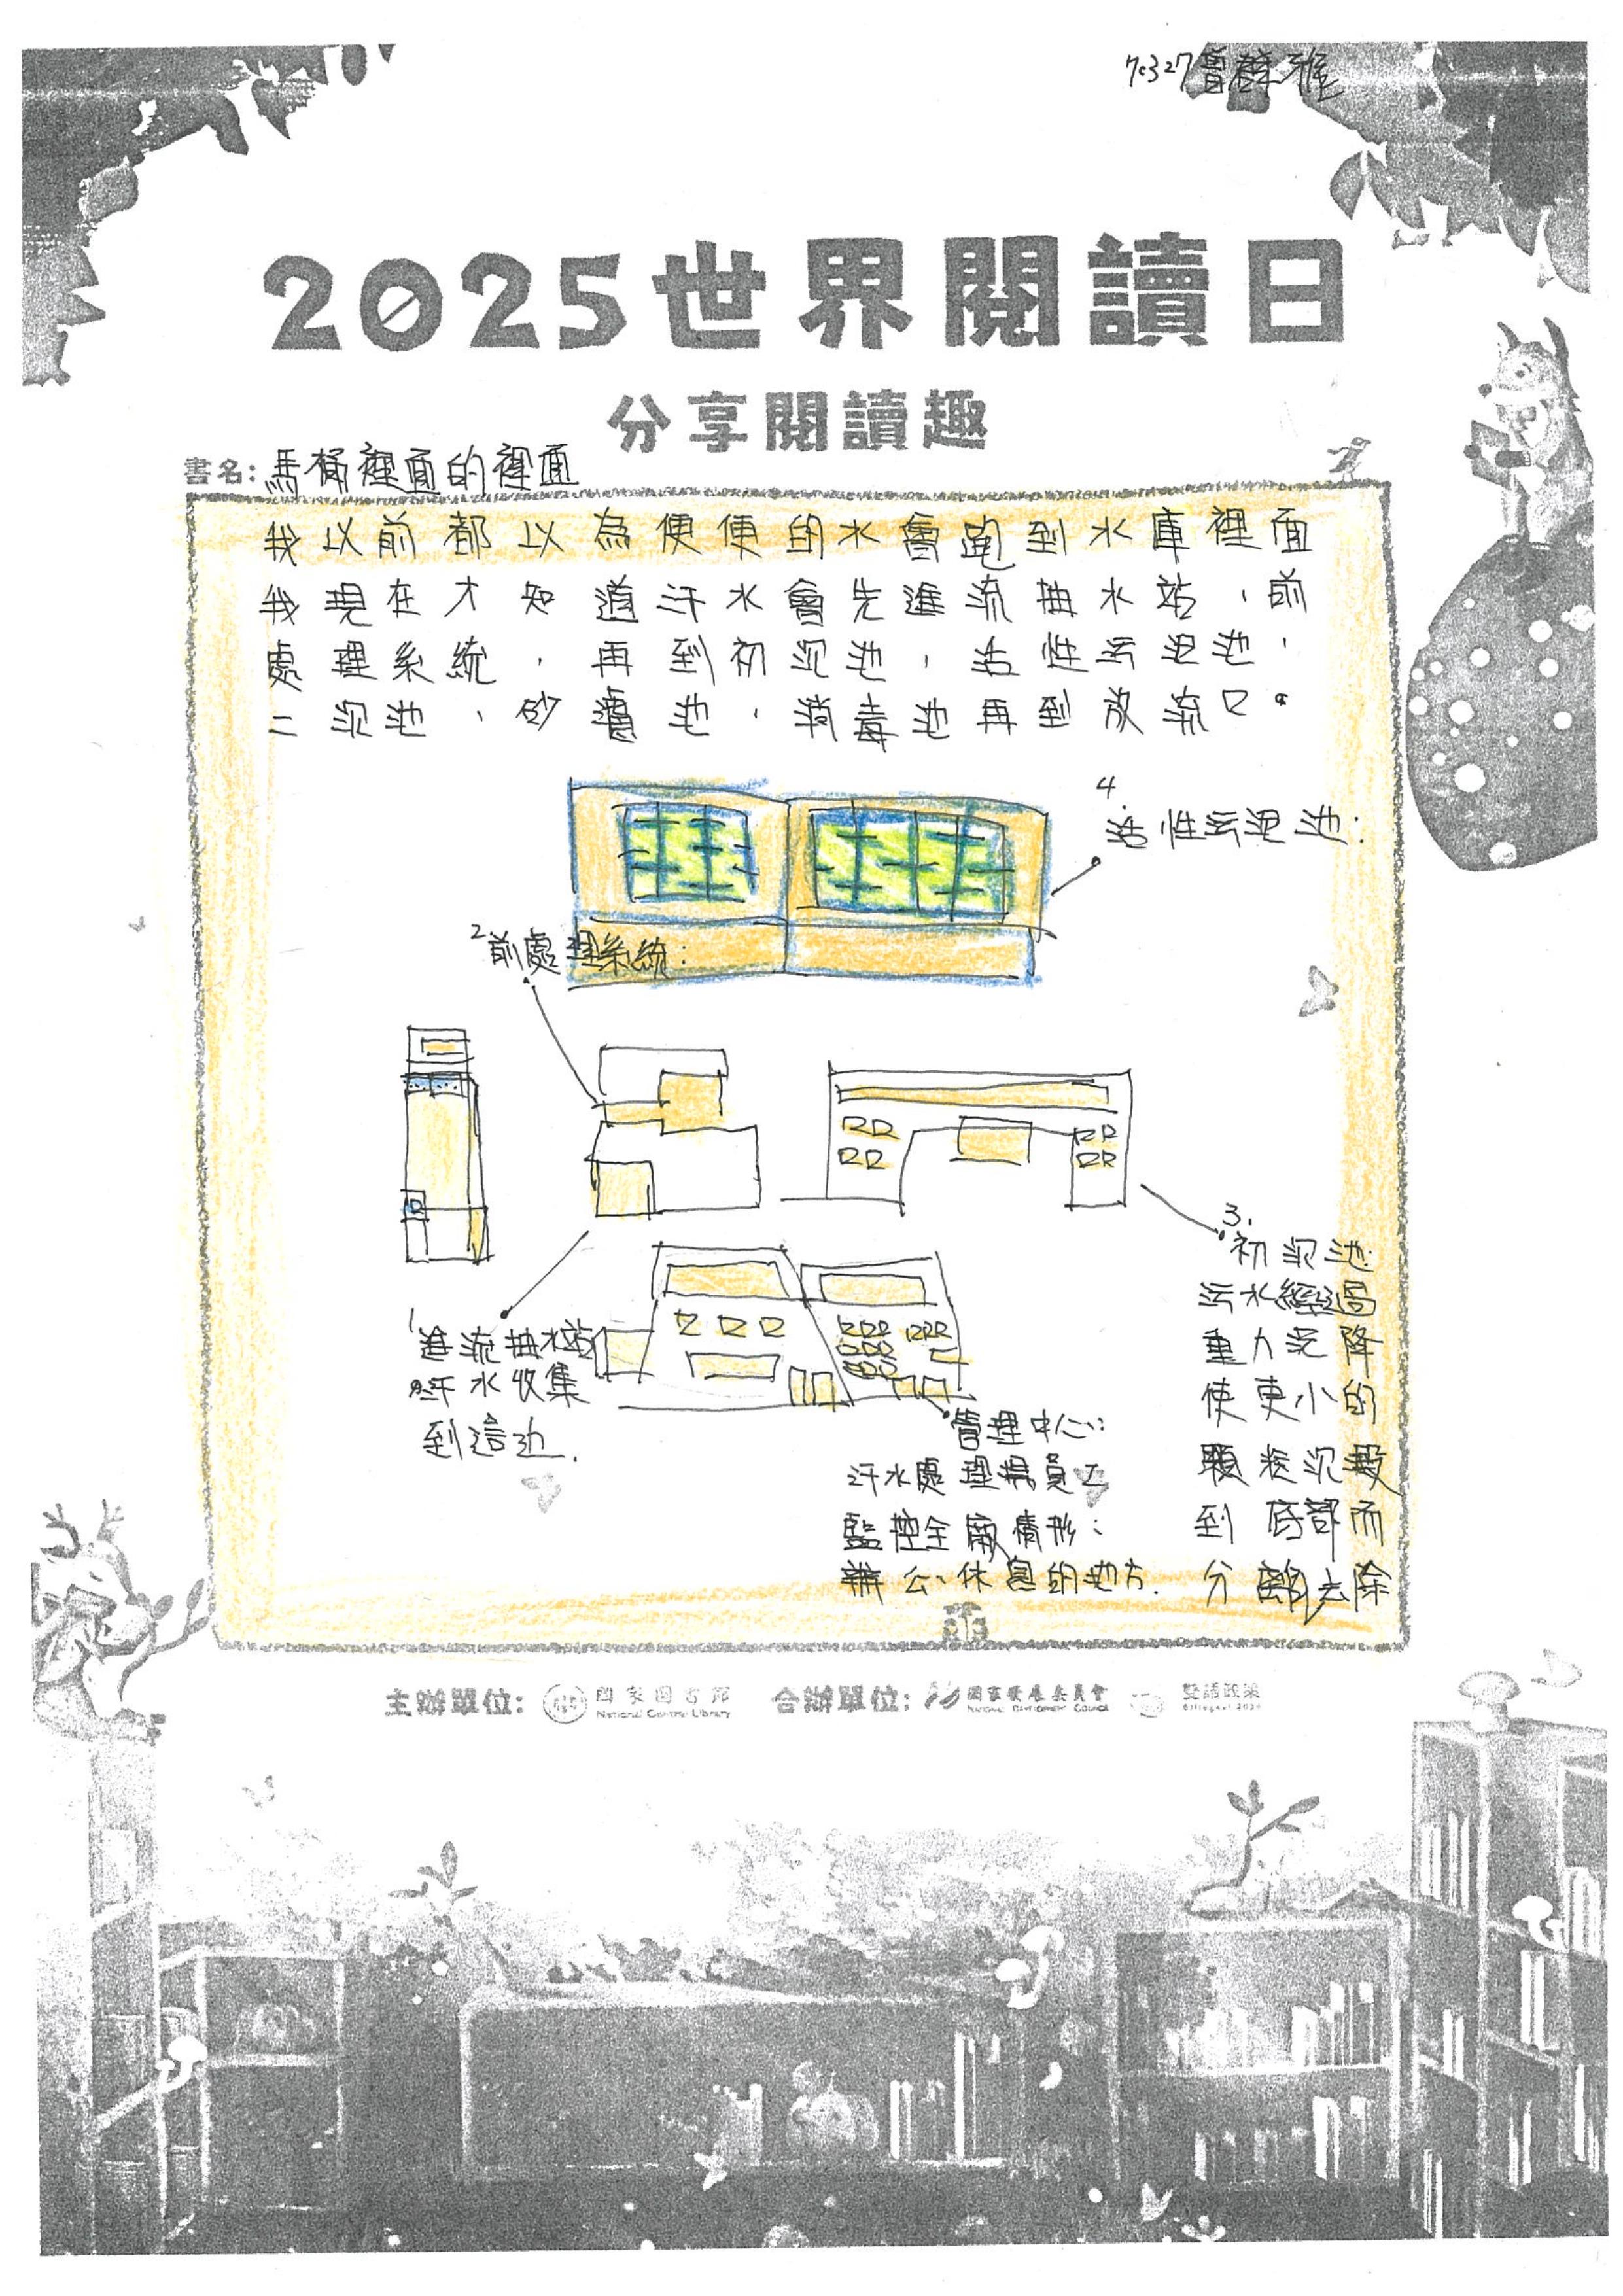 7c327曾群雅
2025世界閱讀日
分享閱讀趣
書名:馬桶裡面的裡面
我以前都以為便便的水會跑到水庫裡面
我現在才知道汙水會先進流抽水站、前
處理系統，再到初沉池，活性污泥池，
二沉池、砂濾池，消毒池再到放流口。
4.
活性污泥池:
2前處理系統:
3.
初沉池:
污水經過
重力沉降
使更小的
顆粒沉澱
到底部而
分離去除
1
進流抽水站
汙水收集
到這边.
管理中心:
汙水處理場員工
監控全廠情形:
辦公、休息的地方.
主辦單位: 國家圖書館 合辦單位: 國家發展委員會 雙語政策
National Central Library National Development Council Bilingual 2030